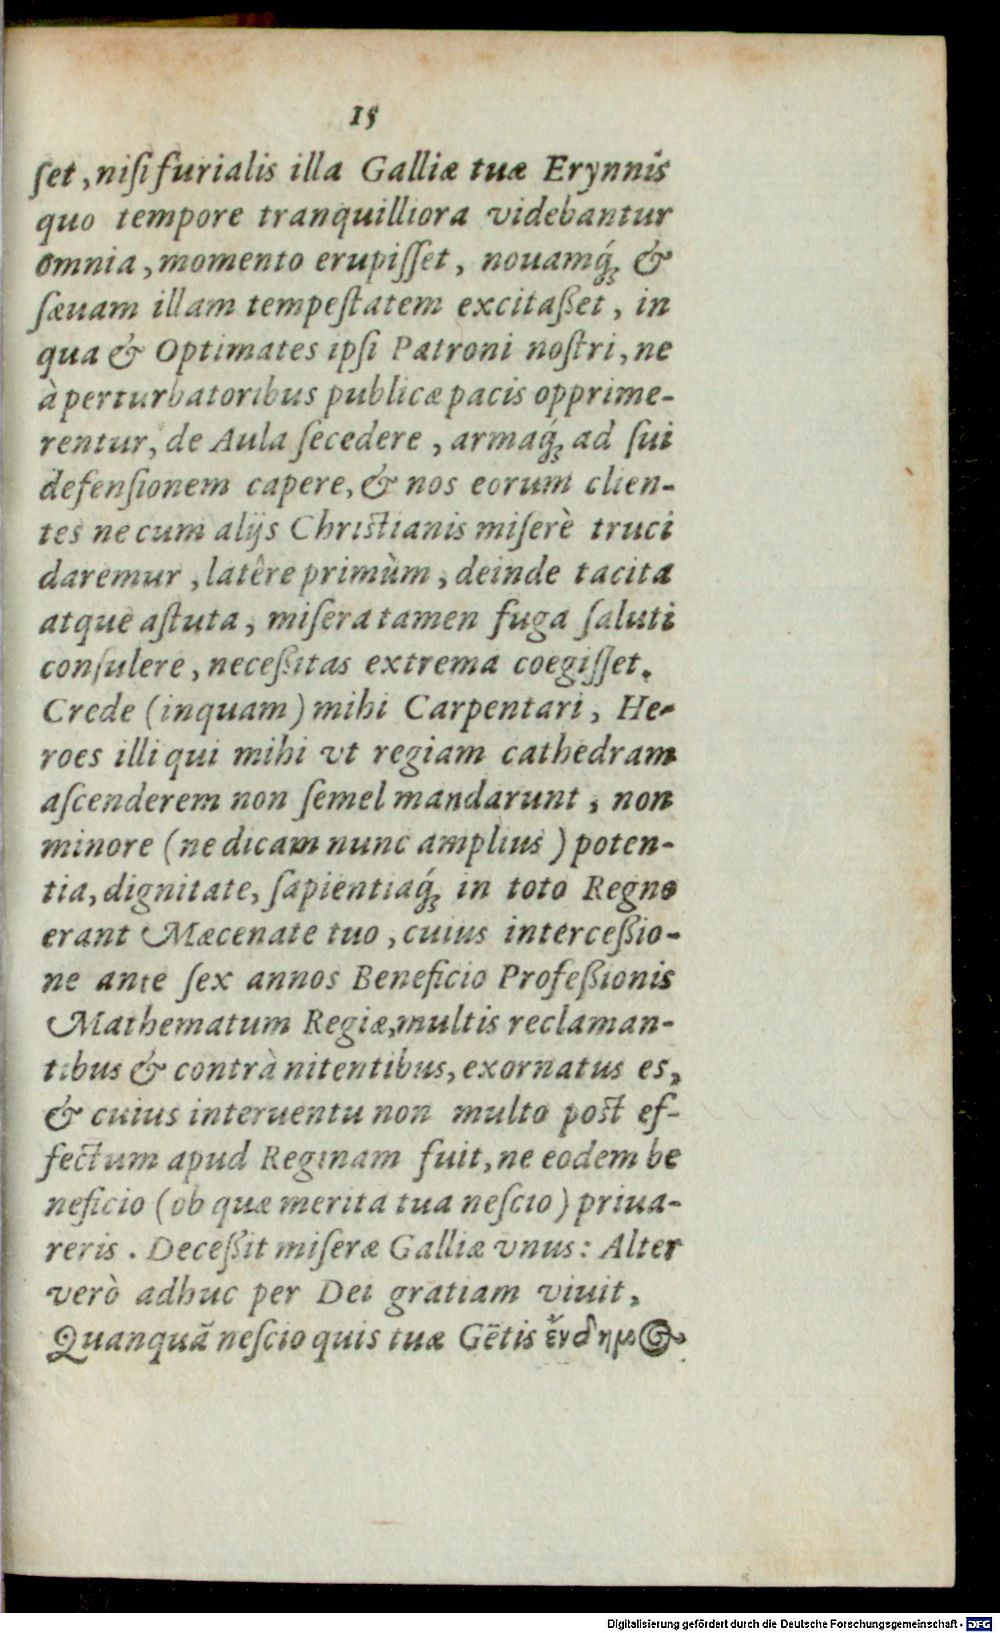 15
ſet, niſi furialis illa Galliæ tuæ Erynnis
quo tempore tranquilliora videbantur
omnia, momento erupiſſet, nouamq́; &
ſæuam illam tempeſtatem excitaßet, in
qua & Optimates ipſi Patroni noſtri, ne
à perturbatoribus publicæ pacis opprime-
rentur, de Aula ſecedere, armaq́; ad ſui
defenſionem capere, & nos eorum clien-
tes ne cum alijs Chriſtianis miſerè truci
daremur, latêre primùm, deinde tacita
atque aſtuta, miſera tamen fuga ſaluti
conſulere, neceßitas extrema coegiſſet.
Crede (inquam) mihi Carpentari, He-
roes illi qui mihi vt regiam cathedram
aſcenderem non ſemel mandarunt, non
minore (ne dicam nunc amplius) poten-
tia, dignitate, ſapientiaq́; in toto Regno
erant Mæcenate tuo, cuius interceßio-
ne ante ſex annos Beneficio Profeßionis
Mathematum Regiæ, multis reclaman-
tibus & contrà nitentibus, exornatus es,
& cuius interuentu non multo poſt ef-
fectum apud Reginam fuit, ne eodem be
neficio (ob quæ merita tua neſcio) priua-
reris. Deceßit miſeræ Galliæ vnus: Alter
verò adhuc per Dei gratiam viuit,
Quanquā neſcio quis tuæ Gētis ἔνδημος
Digitalisierung gefördert durch die Deutsche Forschungsgemeinschaft - DFG